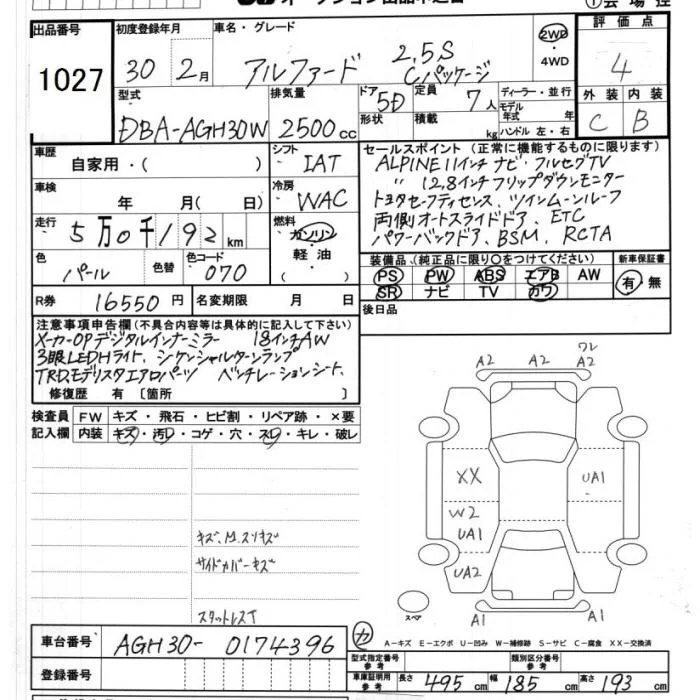 出品番号 初度登録年月 車名・グレード 評価点
1027 30 2月 アルファード 2.5S Cパッケージ 2WD・4WD 4
型式 排気量 ドア 形状 定員 積載 ディーラー・並行 外装 内装
DBA-AGH30W 2500cc 5D 7人 kg モデル年式 年 ハンドル 左・右 C B
車歴 自家用・( ) シフト IAT セールスポイント (正常に機能するものに限る)
ALPINE 11インチ ナビ・フルセグTV
〃 12.8インチフリップダウンモニター
車検 年 月( 日) 冷房 WAC
トヨタセーフティセンス、ツインムーンルーフ
両側オートスライドドア、ETC
パワーバックドア、BSM、RCTA
走行 5万0千192km 燃料 ガソリン・軽油・( )
色 パール 色替 色コード 070
装備品 (純正品に限り○をつけてください) 新車保証書
PS PW ABS エアB AW 有・無
SR ナビ TV カワ
R券 16550円 名変期限 月 日 後日品
注意事項申告欄 (不具合内容等は具体的に記入して下さい)
メーカーOPデジタルインナーミラー 18インチAW
3眼LEDHライト、シケンシャルターンランプ
TRD.モデリスタエアロパーツ ベンチレーションシート、
修復歴 有 〔箇所 〕
検査員記入欄 FW キズ・飛石・ヒビ割・リペア跡・×要
内装 キズ・汚レ・コゲ・穴・スレ・キレ・破レ
キズ、M.スリキズ
サイドカバーキズ
スタットレスT
A2 A2 ワレ A2
XX UA1
W2
UA1
UA2
A1 A1
スペア
カ A-キズ E-エクボ U-凹み W-補修跡 S-サビ C-腐食 XX-交換済
車台番号 AGH30-0174396
型式指定番号 参考 類別区分番号 参考
登録番号 車庫証明用参考 長さ 495cm 幅 185cm 高さ 193cm